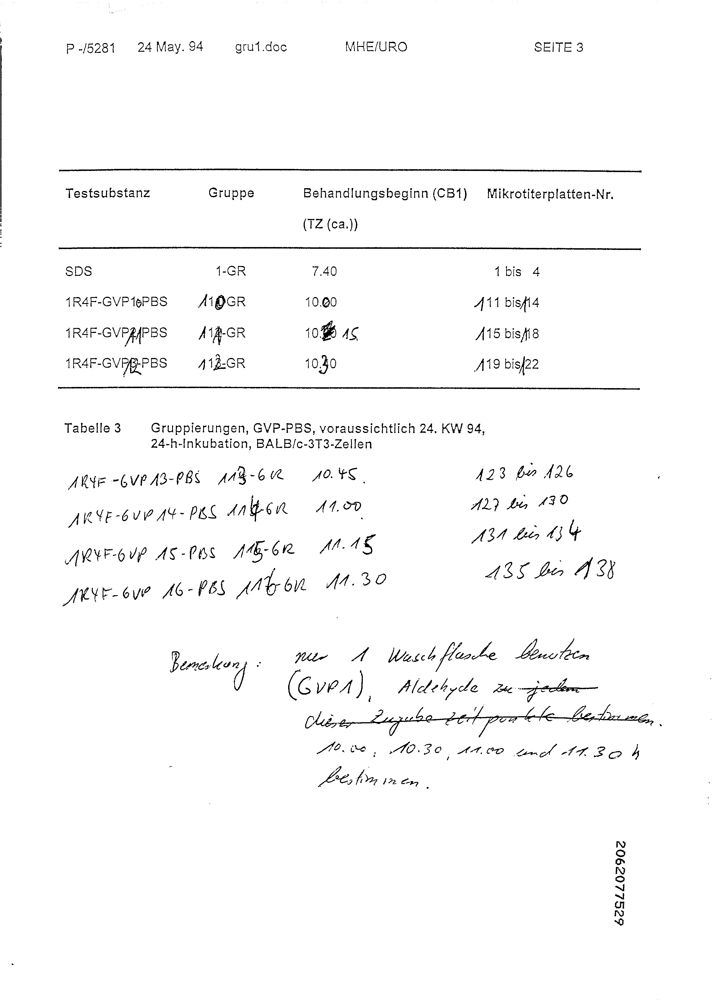 P -/5281 24 May. 94 gru1.doc MHE/URO SEITE 3
Testsubstanz Gruppe Behandlungsbeginn (CB1) Mikrotiterplatten-Nr.
(TZ (ca.))
SDS 1-GR 7.40 1 bis 4
1R4F-GVP10PBS 110GR 10.00 111 bis 114
1R4F-GVP11PBS 111-GR 10.15 115 bis 118
1R4F-GVP12-PBS 112-GR 10.30 119 bis 122
Tabelle 3 Gruppierungen, GVP-PBS, voraussichtlich 24. KW 94,
24-h-Inkubation, BALB/c-3T3-Zellen
1R4F-GVP13-PBS 113-GR 10.45. 123 bis 126
1R4F-GVP 14-PBS 114-GR 11.00 127 bis 130
1R4F-GVP 15-PBS 115-GR 11.15 131 bis 134
1R4F-GVP 16-PBS 116-GR 11.30 135 bis 138
Bemerkung: nur 1 Waschflasche benutzen
(GVP1), Aldehyde zu jedem
dieser Zugabezeitpunkte bestimmen.
10.00, 10.30, 11.00 und 11.30 h
bestimmen.
2062077529